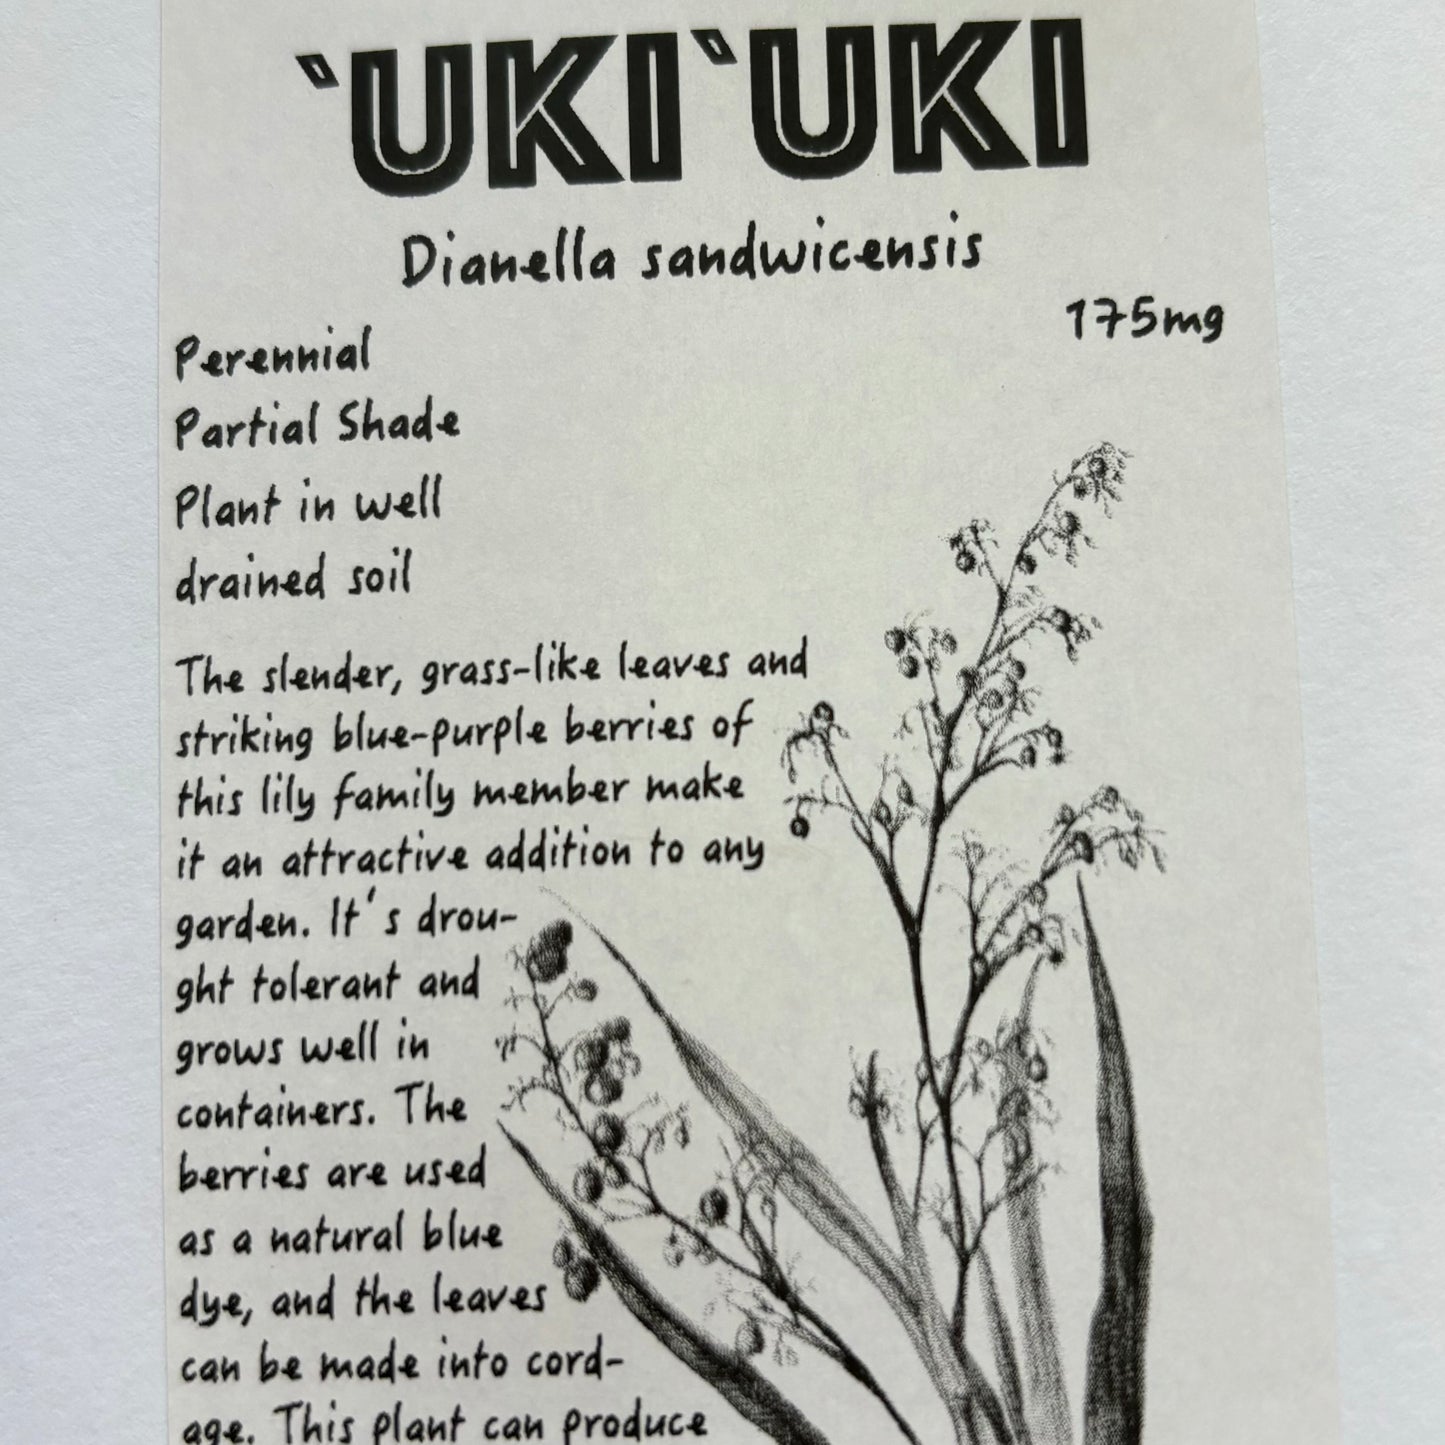 `UKI`UKI
Dianella sandwicensis
175mg
Perennial
Partial Shade
Plant in well
drained soil
The slender, grass-like leaves and
striking blue-purple berries of
this lily family member make
it an attractive addition to any
garden. It's drou-
ght tolerant and
grows well in
containers. The
berries are used
as a natural blue
dye, and the leaves
can be made into cord-
age. This plant can produce